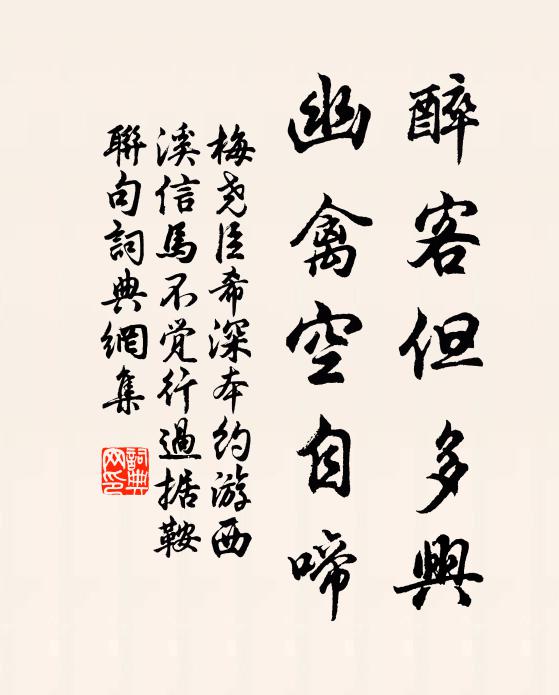 醉客但多興
幽禽空自啼
梅尧臣希深本约游西
溪信馬不觉行過据鞍
聯句詞典網集
詞典网印